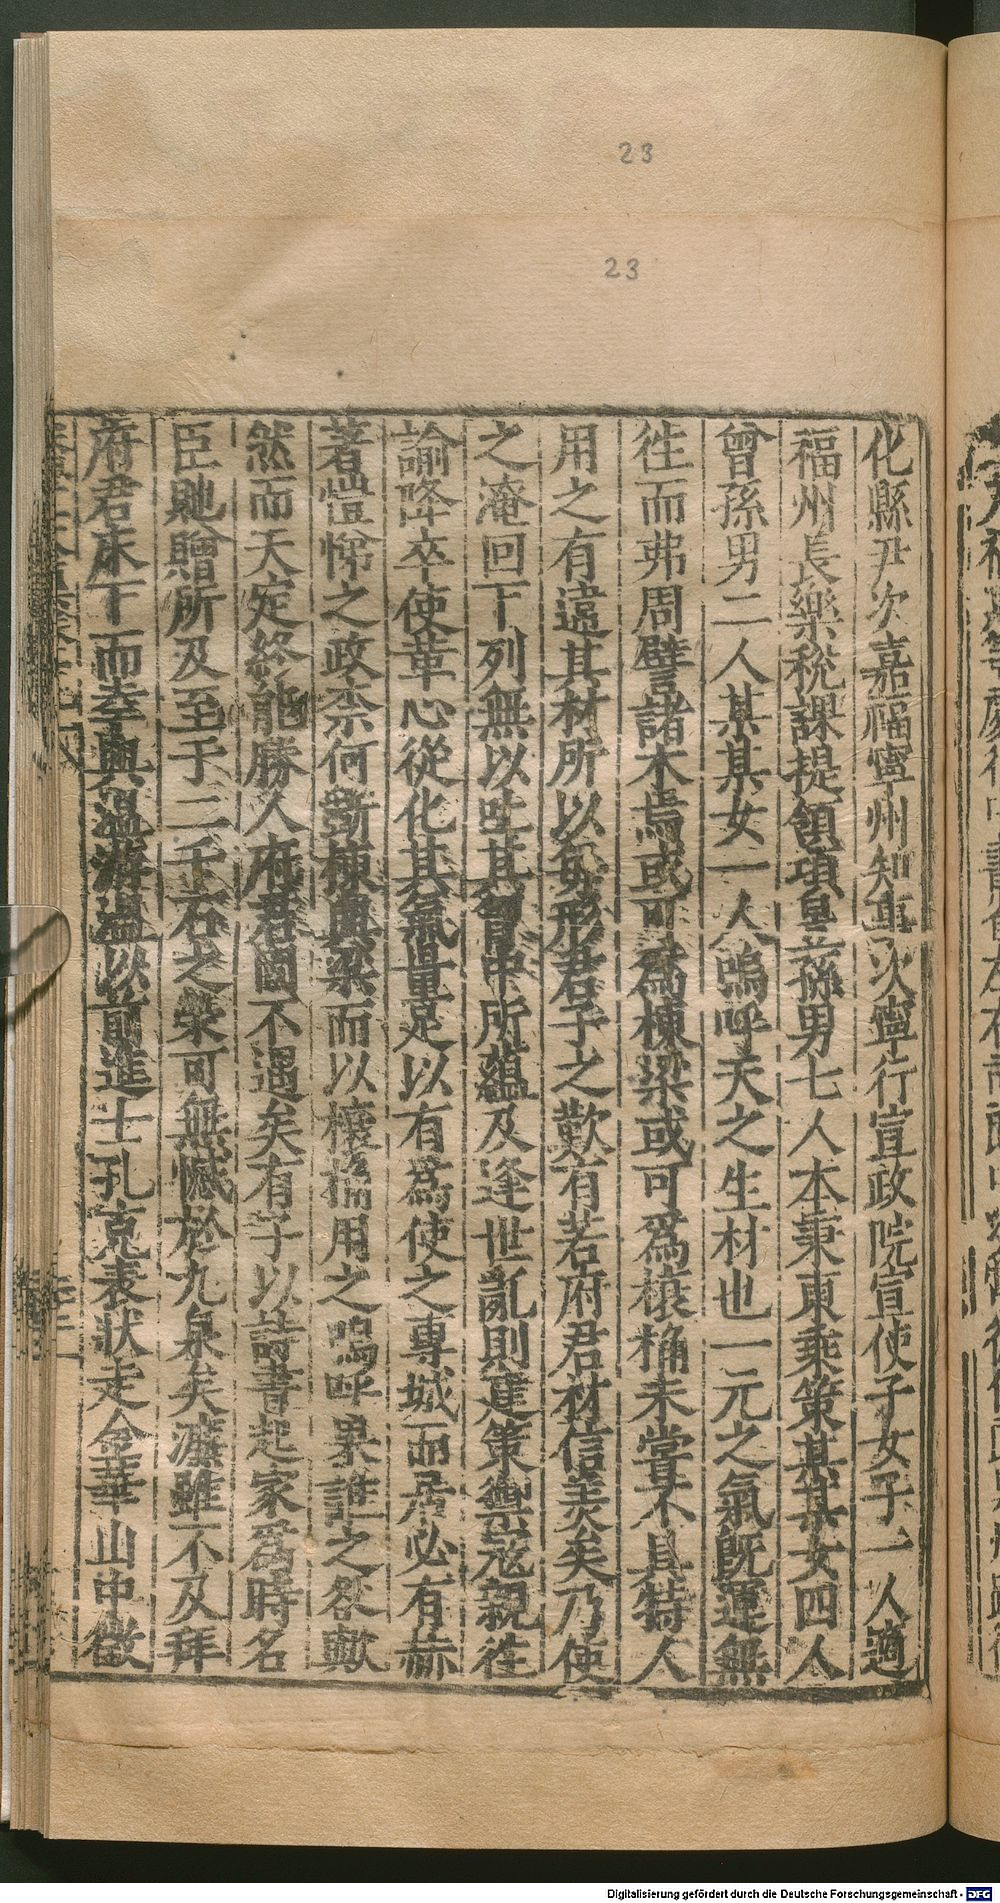 23
23
化縣尹次嘉福寧州知事次寧行宣政院宣使子女子一人適
福州長樂稅課提領項昱孫男七人本秉東乘策某某女四人
曾孫男二人某某女一人嗚呼天之生材也一元之氣旣運無
徃而弗周譬諸木焉或可爲棟梁或可爲榱桷未嘗不具特人
用之有遺其材所以每形君子之歎有若府君材信美矣乃使
之淹回下列無以吐其胷中所蘊及逢世亂則建策禦寇親徃
諭降卒使革心從化其氣量足以有爲使之專城而居必有赫
著愷悌之政柰何斵棟與梁而以榱桷用之嗚呼果誰之咎歟
然而天定終能勝人府君固不遇矣有子以詩書起家爲時名
臣貤贈所及至于二千石之榮可無憾於九泉矣濂雖不及拜
府君床下而幸與溫游溫以前進士孔克表狀走金華山中徵
Digitalisierung gefördert durch die Deutsche Forschungsgemeinschaft - DFG